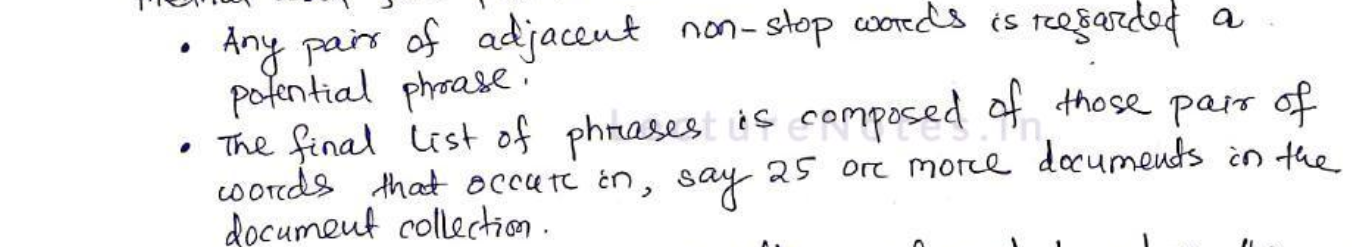 • Any pair of adjacent non-stop words is regarded a
potential phrase.
• The final list of phrases is composed of those pair of
words that occur in, say 25 or more documents in the
document collection.
LectureNotes.in